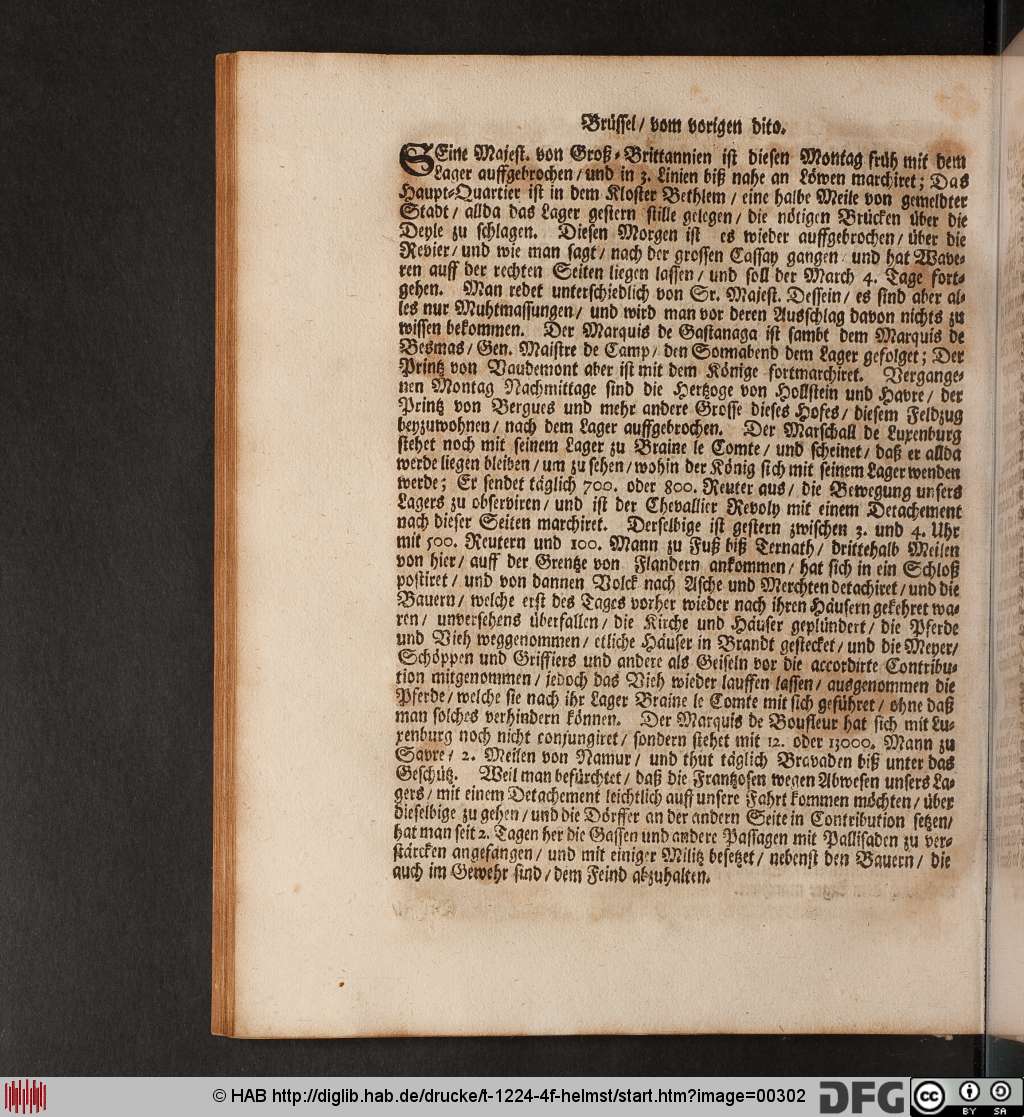 Brüssel / vom vorigen dito.
SEine Majest. von Groß-Brittannien ist diesen Montag früh mit dem
Lager auffgebrochen / und in 3. Linien biß nahe an Löwen marchiret; Das
Haupt-Quartier ist in dem Kloster Bethlem / eine halbe Meile von gemeldter
Stadt / allda das Lager gestern stille gelegen / die nötigen Brücken über die
Deyle zu schlagen. Diesen Morgen ist es wieder auffgebrochen / über die
Revier / und wie man sagt / nach der grossen Cassay gangen / und hat Wave-
ren auff der rechten Seiten liegen lassen / und soll der March 4. Tage fort-
gehen. Man redet unterschiedlich von Sr. Majest. Dessein / es sind aber al-
les nur Muhtmassungen / und wird man vor deren Ausschlag davon nichts zu
wissen bekommen. Der Marquis de Gastanaga ist sambt dem Marquis de
Besmas / Gen. Maistre de Camp / den Sonnabend dem Lager gefolget; Der
Printz von Vaudemont aber ist mit dem Könige fortmarchiret. Vergange-
nen Montag Nachmittage sind die Hertzoge von Hollstein und Havre / der
Printz von Bergues und mehr andere Grosse dieses Hofes / diesem Feldzug
beyzuwohnen / nach dem Lager auffgebrochen. Der Marschall de Luxenburg
stehet noch mit seinem Lager zu Braine le Comte / und scheinet / daß er allda
werde liegen bleiben / um zu sehen / wohin der König sich mit seinem Lager wenden
werde; Er sendet täglich 700. oder 800. Reuter aus / die Bewegung unsers
Lagers zu observiren / und ist der Chevallier Revoly mit einem Detachement
nach dieser Seiten marchiret. Derselbige ist gestern zwischen 3. und 4. Uhr
mit 500. Reutern und 100. Mann zu Fuß biß Ternath / drittehalb Meilen
von hier / auff der Grentze von Flandern ankommen / hat sich in ein Schloß
postiret / und von dannen Volck nach Asche und Merchten detachiret / und die
Bauern / welche erst des Tages vorher wieder nach ihren Häusern gekehret wa-
ren / unversehens überfallen / die Kirche und Häuser geplündert / die Pferde
und Vieh weggenommen / etliche Häuser in Brandt gestecket / und die Meyer /
Schöppen und Griffiers und andere als Geiseln vor die accordirte Contribu-
tion mitgenommen / jedoch das Vieh wieder lauffen lassen / ausgenommen die
Pferde / welche sie nach ihr Lager Braine le Comte mit sich geführet / ohne daß
man solches verhindern können. Der Marquis de Boufleur hat sich mit Lu-
xenburg noch nicht conjungiret / sondern stehet mit 12. oder 13000. Mann zu
Savre / 2. Meilen von Namur / und thut täglich Bravaden biß unter das
Geschütz. Weil man befürchtet / daß die Frantzosen wegen Abwesen unsers La-
gers / mit einem Detachement leichtlich auff unsere Fahrt kommen möchten / über
dieselbige zu gehen / und die Dörffer an der andern Seite in Contribution setzen /
hat man seit 2. Tagen her die Gassen und andere Passagen mit Pallisaden zu ver-
stärcken angefangen / und mit einiger Militz besetzet / nebenst den Bauern / die
auch im Gewehr sind / dem Feind abzuhalten.
© HAB http://diglib.hab.de/drucke/t-1224-4f-helmst/start.htm?image=00302
DFG
cc
BY SA